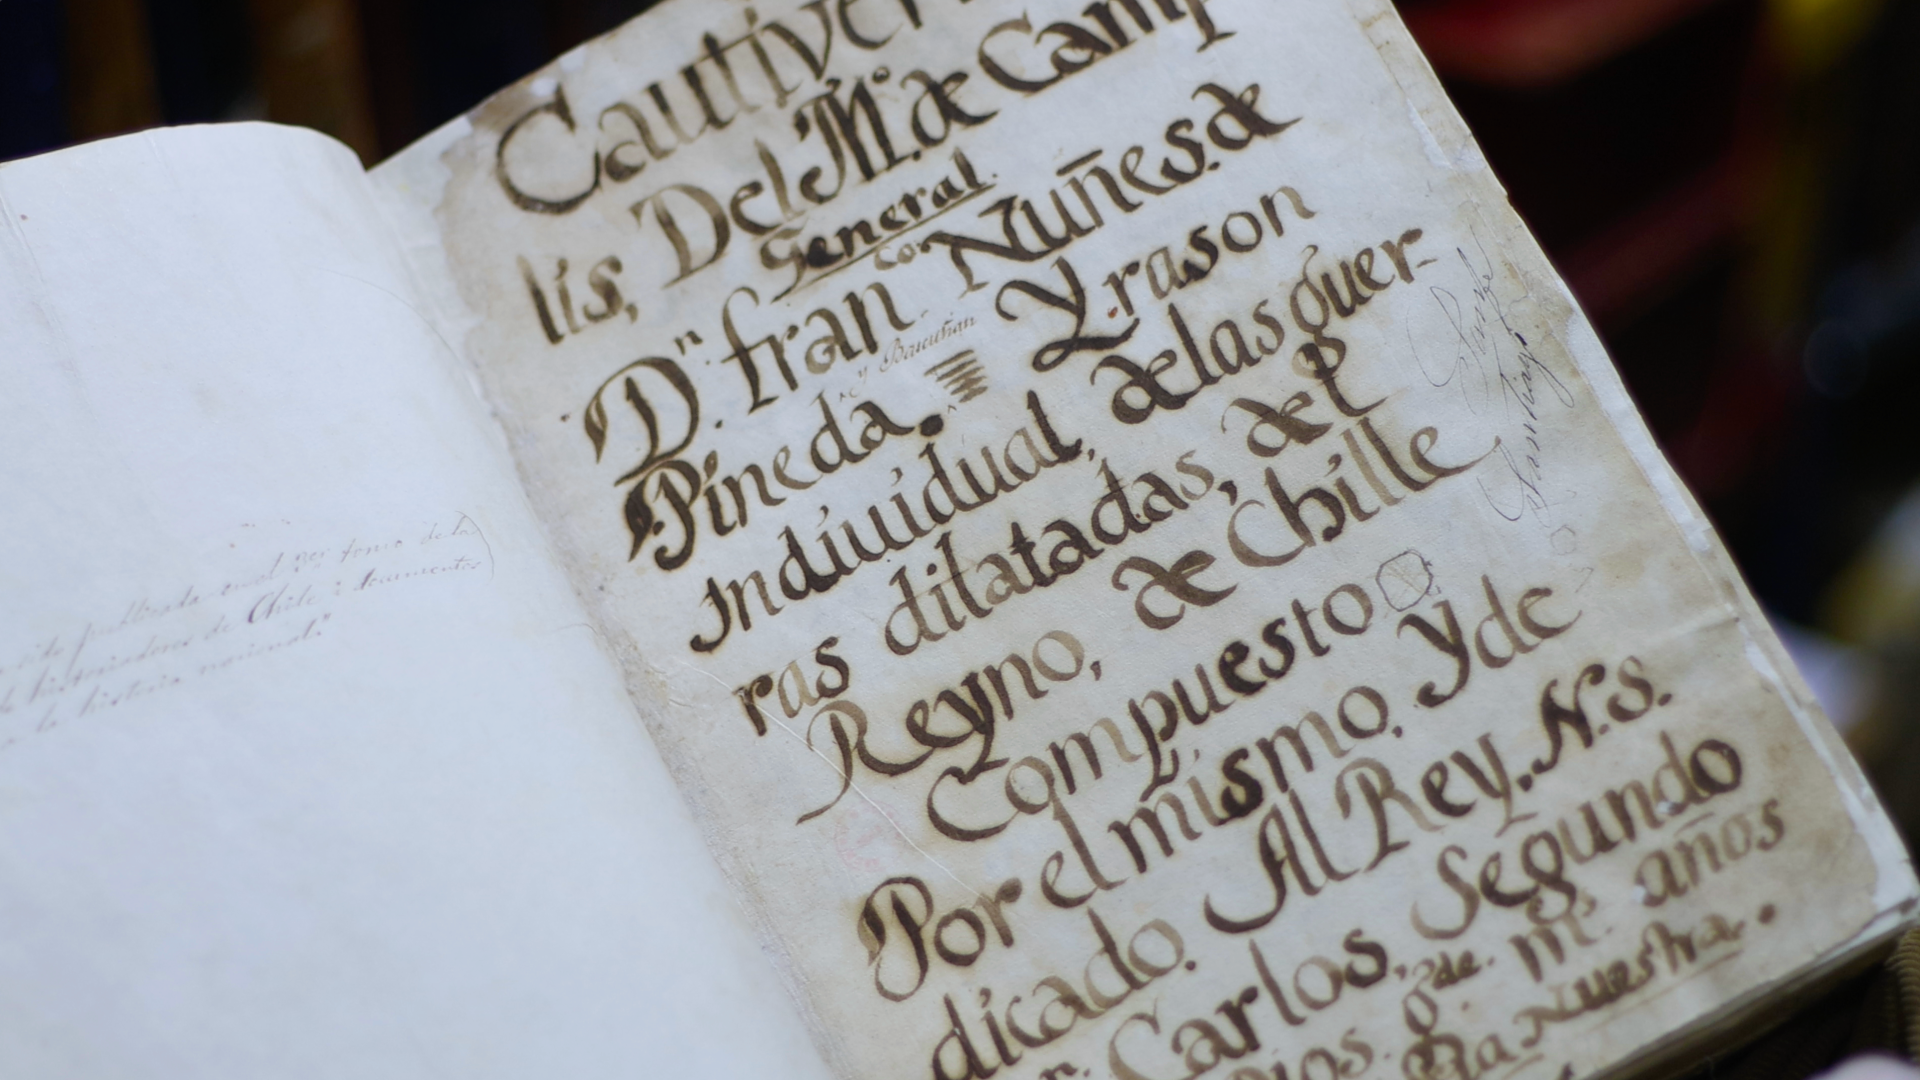 publicada en el 3er tomo de la
historiadores de Chile i documentos
la historia nacional."
Cautiver
lis, Del M.º de Camp
General
Dn. fran.co Nuñes. de
y Bascuñan
Pineda. Y rason
Indiuidual, de las guer-
ras dilatadas, del
Reyno, de Chille
Compuesto
Por el mismo, y de
dicado. Al Rey. N. S.
r. Carlos. Segundo
Dios. gde. ms. años
Pa Nuestra.
Santiago